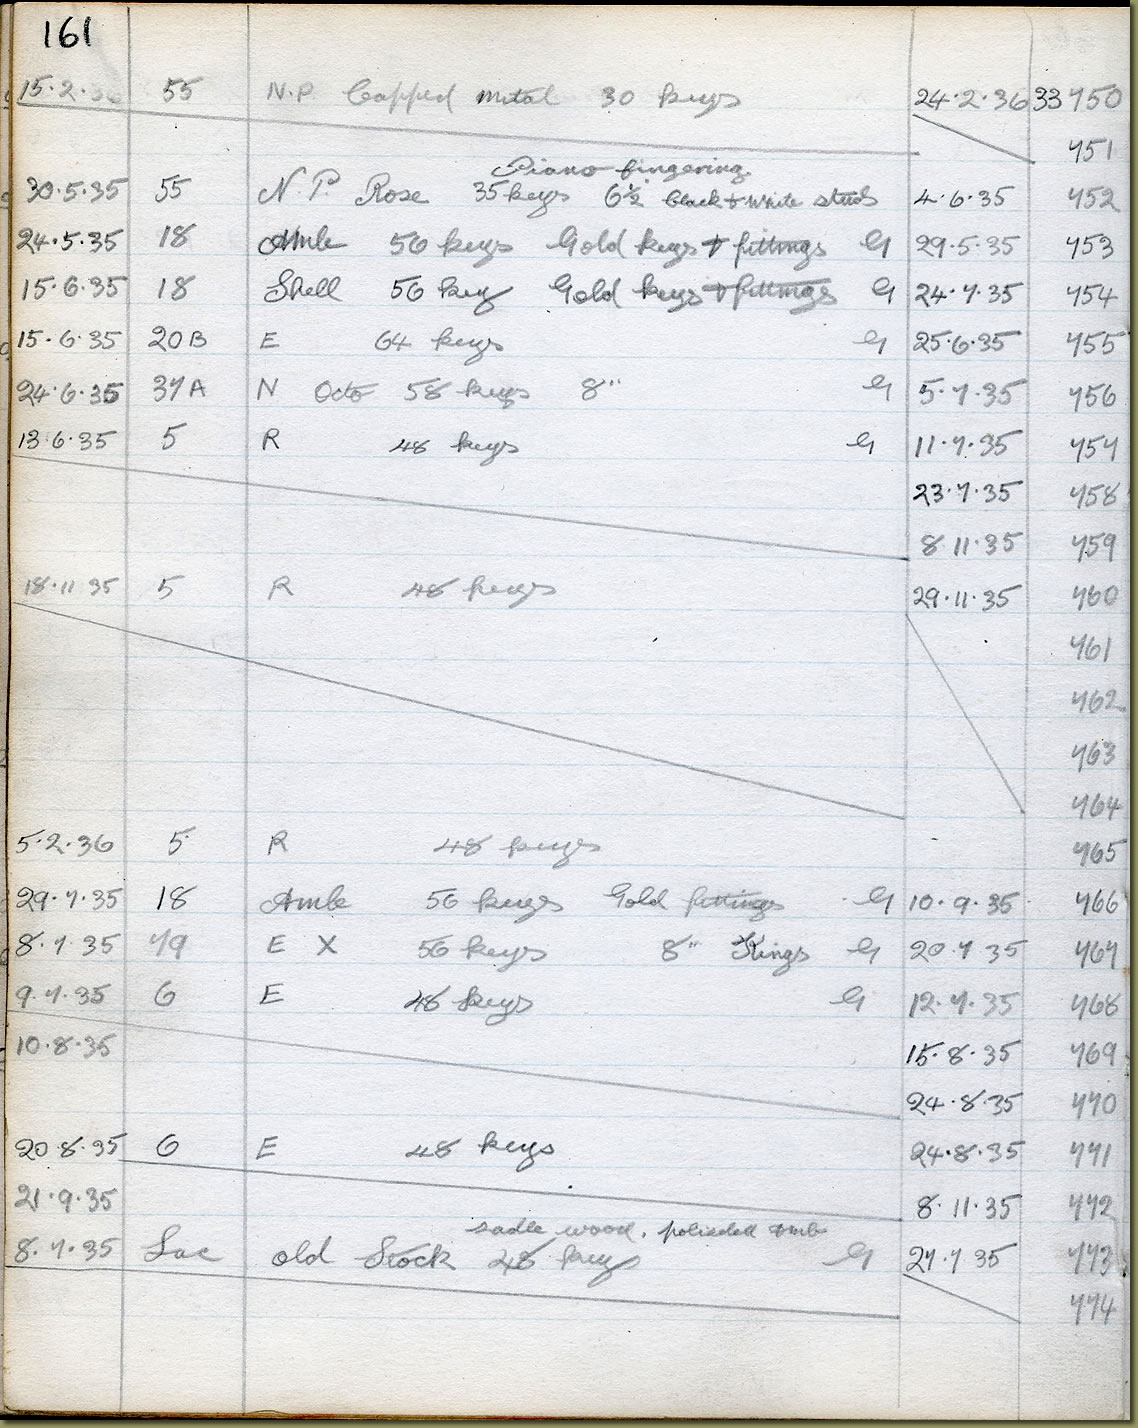 161
15.2.36 55 N.P. Capped metal 30 keys 24.2.36 33 750
751
Piano fingering.
30.5.35 55 N.P. Rose 35 keys 6½ black & white studs 4.6.35 752
24.5.35 18 Amb 56 keys Gold keys & fittings G 29.5.35 753
15.6.35 18 Shell 56 key Gold keys & fittings G 24.7.35 754
15.6.35 20B E 64 keys G 25.6.35 755
24.6.35 37A N Octo 58 keys 8" G 5.7.35 756
13.6.35 5 R 48 keys G 11.7.35 757
23.7.35 758
8.11.35 759
18.11.35 5 R 48 keys 29.11.35 760
761
762
763
764
5.2.36 5 R 48 keys 765
29.7.35 18 Amb 56 keys Gold fittings G 10.9.35 766
8.7.35 79 E X 56 keys 8" Kings G 20.7.35 767
9.7.35 6 E 48 keys G 12.7.35 768
10.8.35 15.8.35 769
24.8.35 770
20.8.35 6 E 48 keys 24.8.35 771
21.9.35 8.11.35 772
wood, polished Amb
8.7.35 old Stock 48 keys G 27.7.35 773
774